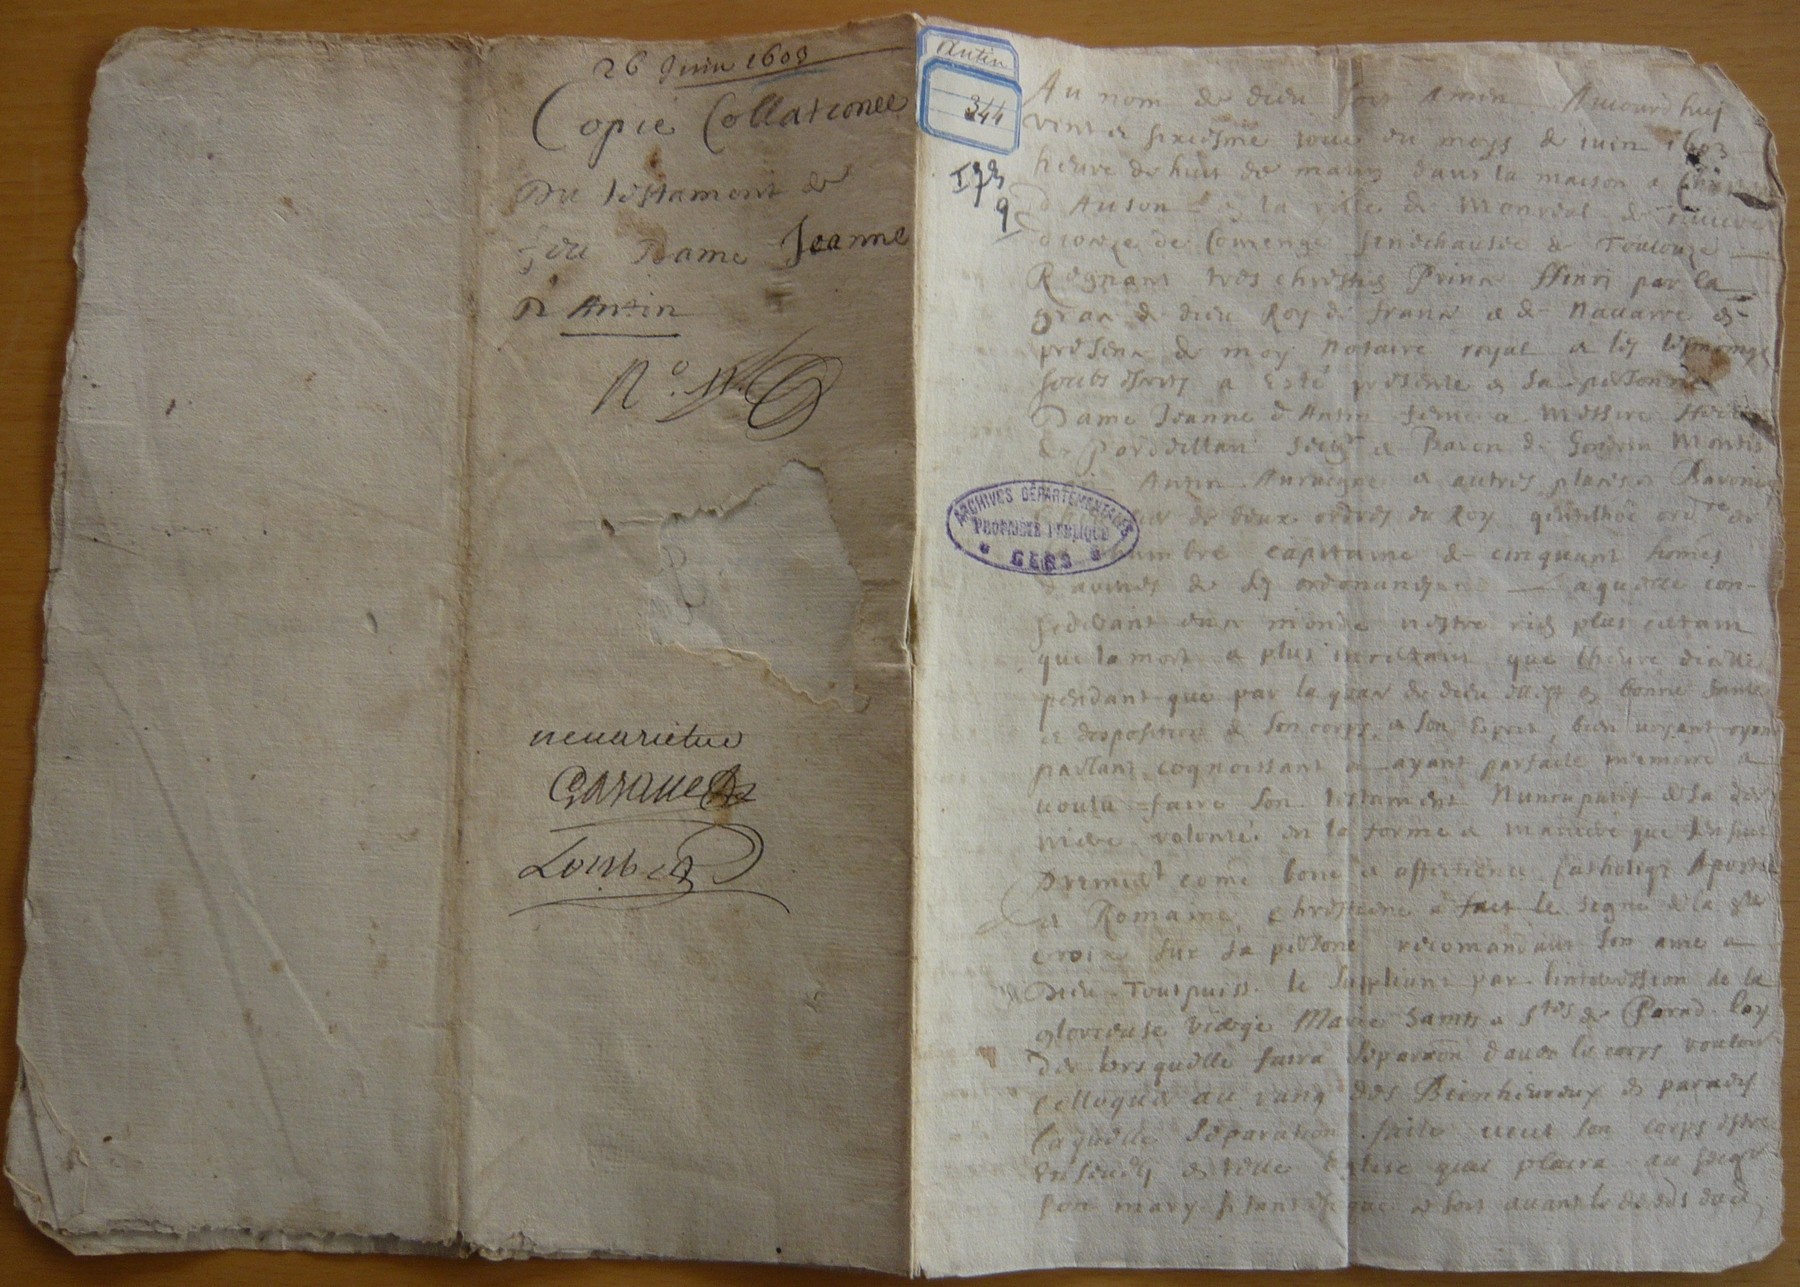 26 Juin 1608
Copie Collationee
Du testament de
feu Dame Jeanne
D'Antin
N.º
nevarietur
Lombez
Antin
344
173
9
ARCHIVES DÉPARTEMENTALES
PROPRIÉTÉ PUBLIQUE
GERS
Au nom de dieu soit Amen Aujourdhuy
vint et sixiesme jour du moys de juin 1603
heure de huit de matin dans la maison de
d'Auson a la ville de Monreal de riviere
dioceze de Comenge senechaussée de Toulouze
Regnant tres chrestien Prince Henri par la
grace de dieu Roy de france et de Navarre en
presence de moy notaire royal et les tesmoings
soubs escrits a esté presente en sa personne
Dame Jeanne d'Antin feme a Messire Hector
de Pardeillan Seigr et Baron de Gondrin Montes
Antin et autres places Baronies
de deux ordres du Roy gentilhõe ordre de
chambre capitaine de cinquant homes
d'armes de ses ordonances aquelle con-
siderant en ce monde n'estre rien plus certain
que la mort et plus incertain que lheure dicelle
pendant que par la grace de dieu elle est en bonne sante
et disposition de son corps et son Esprit, bien voyant oyant
parlant cognoissant et ayant parfaite memoire a
voulu faire son testament Nuncupatif et sa der
niere volonté en la forme et maniere que sensuit
Premiert come bone et Catholiqe Apostol
et Romaine chrestiene a fait le segne de la ste
croix sur sa persone recomandant son ame a
Dieu Toutpuiss. le supliant par lintercession de la
glorieuse vierge Marie Saints et Stes de Parad. lay
des lorsquelle faira separaõn dauec le corps vouloir
colloquer au rang des Bienheureux en paradis
laquelle separation faite veut son corps estre
ensevely en telle Eglise qual plaira au seigr
son mary sitant est que et soit avant le deces